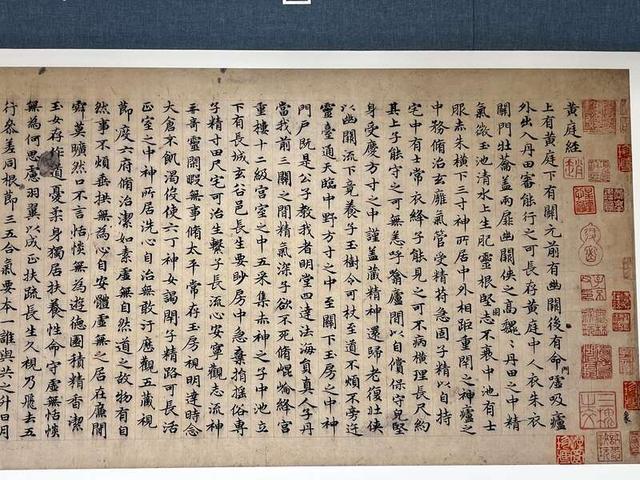 黃庭經
上有黃庭下有關元前有幽闕後有命門噓吸廬
外出入丹田審能行之可長存黃庭中人衣朱衣
關門壯蘥蓋兩扉幽闕俠之高巍〻丹田之中精
氣微玉池清水上生肥靈根堅志不衰中池有士
服赤朱橫下三寸神所居中外相距重閉之神廬之
中務脩治玄廱氣管受精符急固子精以自持
宅中有士常衣絳子能見之可不病橫理長尺約
其上子能守之可無恙呼噏廬間以自償保守皃堅
身受慶方寸之中謹蓋藏精神還歸老復壯俠
以幽闕流下竟養子玉樹令可杖至道不煩不旁迕
靈臺通天臨中野方寸之中至關下玉房之中神
門戶既是公子教我者明堂四達法海員真人子丹
當我前三關之間精氣深子欲不死脩崐崘絳宮
重樓十二級宮室之中五采集赤神之子中池立
下有長城玄谷邑長生要眇房中急棄捐搖俗專
子精寸田尺宅可治生繫子長流心安寧觀志流神
三奇靈閒暇無事脩太平常存玉房視明達時念
大倉不飢渴役使六丁神女謁閉子精路可長活
正室之中神所居洗心自治無敢汙歷觀五藏視
節度六府脩治潔如素虛無自然道之故物有自
然事不煩垂拱無為心自安體虛無之居在廉間
寂莫曠然口不言恬惔無為遊德園積精香潔
玉女存作道憂柔身獨居扶養性命守虛無恬惔
無為何思慮羽翼以成正扶疏長生久視乃飛去五
行參差同根節三五合氣要本一誰與共之升日月